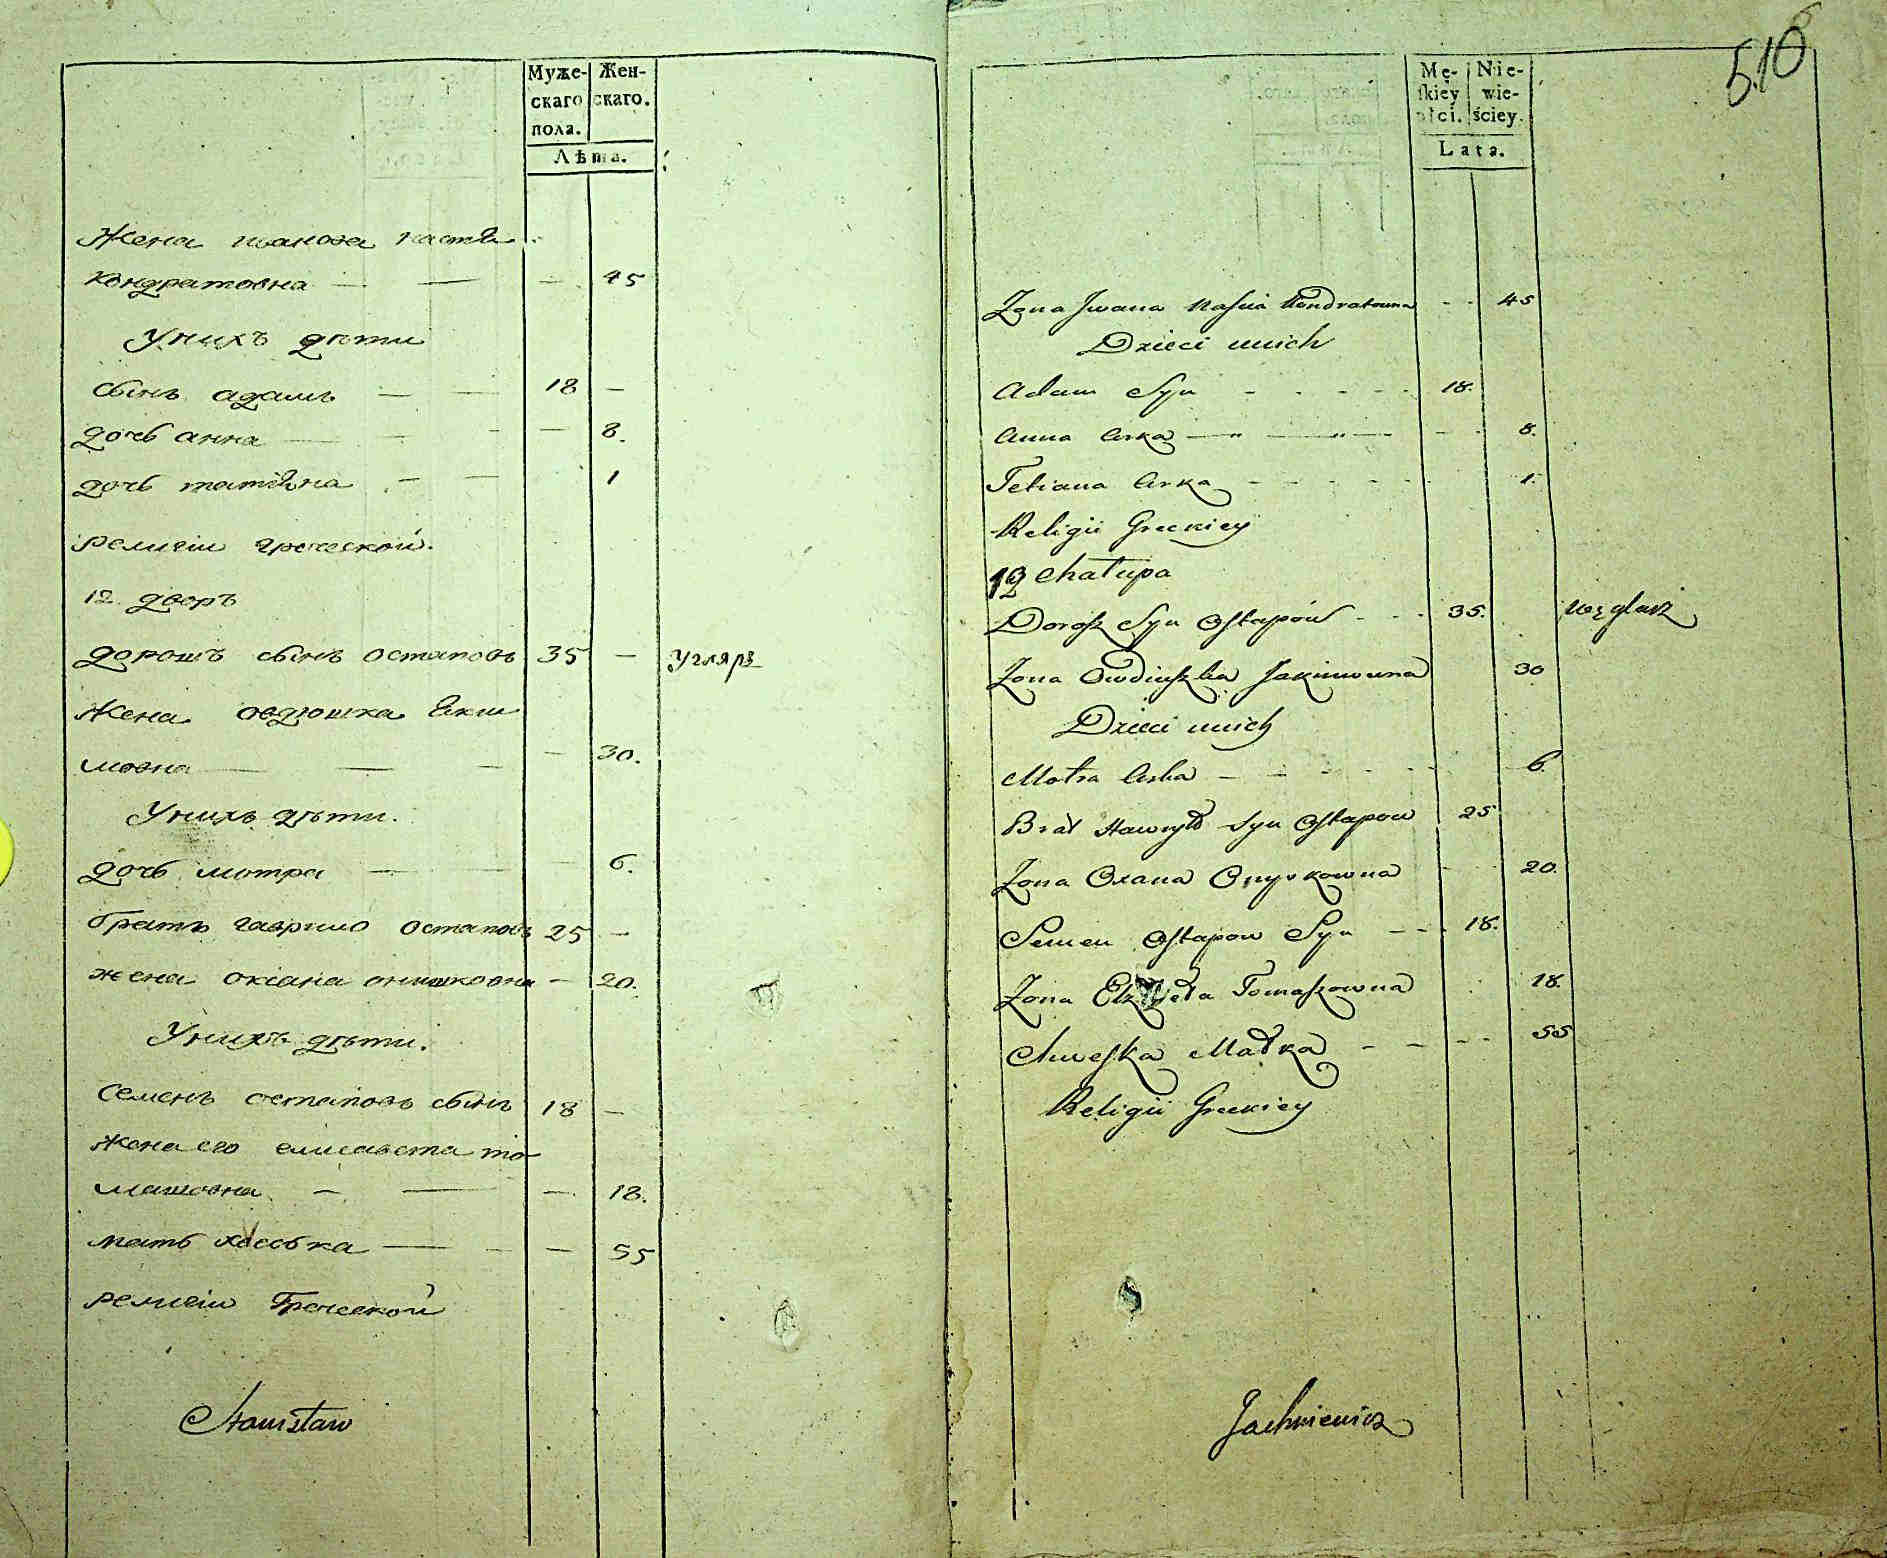 Муже-
скаго
пола.
Жен-
скаго.
Лѣта.
Жена ивана настя
кондратовна — — — 45
Унихъ дѣти
сынъ адамъ — — 18 —
дочь анна — — — 8.
дочь татіяна — — 1
религіи греческой.
12 дворъ
дорошъ сынъ остаповъ 35 — угляръ
жена овдюшка яки
мовна — — — 30.
Унихъ дѣти.
дочь мотра — — 6.
братъ гаврило остаповъ 25 —
жена оксана онишковна — 20.
Унихъ дѣти.
семенъ остаповъ сынъ 18 —
жена его елисавета то
машовна — — — 18.
мать — — — 55
религіи Греческой
Stanisław
516
Mę-
skiey
płci.
Nie-
wie-
ściey.
Lata.
Zona Jwana Nasťia Kondratowna - - 45
Dzieci unich
Adam Syn - - - - 18.
Anna Crka — " — " — - - 8.
Tetiana Crka - - - - - 1.
Religii Greckiey
12 Chałupa
Dorosz Syn Ostapów - - - 35. węglarz
Zona Owdiuszka Jakimowna 30
Dzieci unich
Motra Crka - - - - - 6.
Brat Hawryło Syn Ostapow 25
Zona Oxana Onyskowna 20.
Semen Ostapow Syn - - - 18.
Zona Elzbieta Tomaszowna 18.
Matka - - - - 55
Religii Greckiey
Jachniewicz